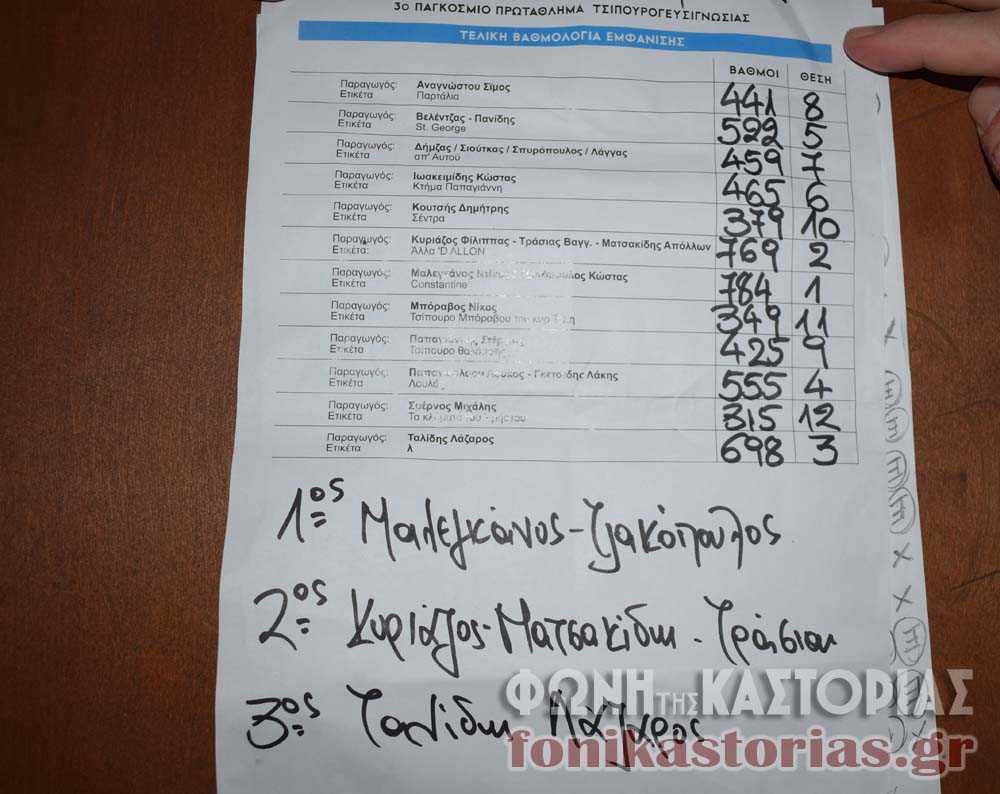 3ο ΠΑΓΚΟΣΜΙΟ ΠΡΩΤΑΘΛΗΜΑ ΤΣΙΠΟΥΡΟΓΕΥΣΙΓΝΩΣΙΑΣ
ΤΕΛΙΚΗ ΒΑΘΜΟΛΟΓΙΑ ΕΜΦΑΝΙΣΗΣ
ΒΑΘΜΟΙ ΘΕΣΗ
Παραγωγός: Αναγνώστου Σίμος 441 8
Ετικέτα Παρτάλια
Παραγωγός: Βελέντζας - Πανίδης 522 5
Ετικέτα St. George
Παραγωγός: Δήμζας / Σιούτκας / Σπυρόπουλος / Λάγγας 459 7
Ετικέτα απ' Αυτού
Παραγωγός: Ιωακειμίδης Κώστας 465 6
Ετικέτα Κτήμα Παπαγιάννη
Παραγωγός: Κουτσής Δημήτρης 379 10
Ετικέτα Σέντρα
Παραγωγός: Κυριάζος Φίλιππας - Τράσιας Βαγγ. - Ματσακίδης Απόλλων 769 2
Ετικέτα: Άλλα 'D ALLON
Παραγωγός: Μαλεγκάνος Κώστας 784 1
Ετικέτα: Constantine
Παραγωγός: Μπόραβος Νίκος 349 11
Ετικέτα: Τσίπουρο Μπόραβου του κυρ
Παραγωγός: 425 9
Ετικέτα Τσίπουρο
Παραγωγός: Λάκης 555 4
Ετικέτα:
Παραγωγός: Σμέρνος Μιχάλης 315 12
Ετικέτα Τα
Παραγωγός: Ταλίδης Λάζαρος 698 3
Ετικέτα λ
1ος Μαλεγκάνος - Τζακόπουλος
2ος Κυριάζος - Ματσακίδη - Τράσιας
3ος Ταλίδη Λάζαρος
ΦΩΝΗ ΤΗΣ ΚΑΣΤΟΡΙΑΣ
fonikastorias.gr